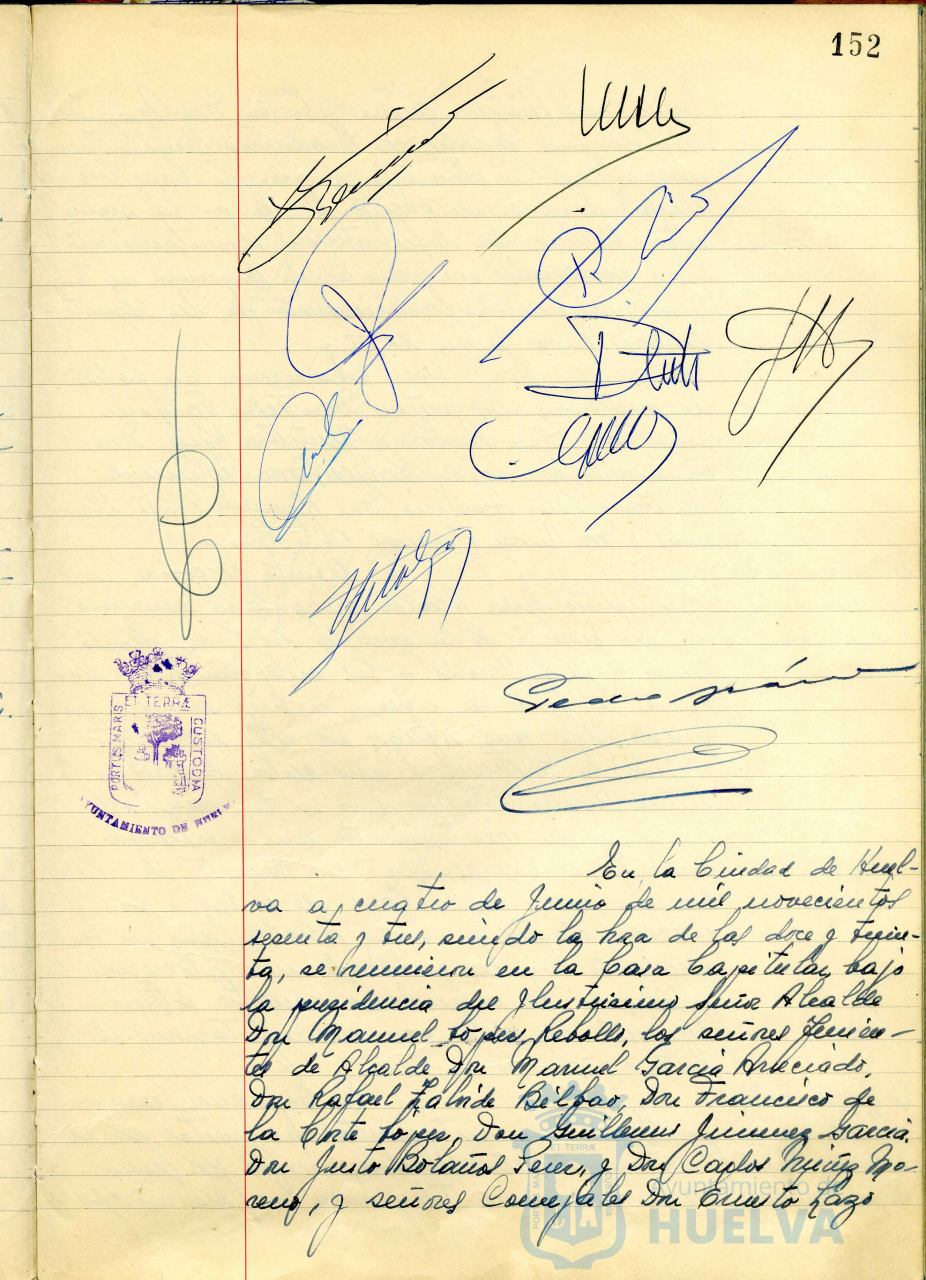 152
ET TERRÆ
PORTUS MARIS
CUSTODIA
AYUNTAMIENTO DE HUELVA
En la Ciudad de Huel-
va a cuatro de Junio de mil novecientos
sesenta y tres, siendo la hora de las doce y trein-
ta, se reunieron en la Casa Capitular, bajo
la presidencia del Ilustrisimo Señor Alcalde
Don Manuel López Rebollo, los señores Tenien-
tes de Alcalde Don Manuel Garcia
Don Rafael Bilbao, Don Francisco de
la Corte López, Don Guillermo Jimenez Garcia,
Don Justo Bolaños Perez, y Don Carlos Muñiz Mo-
reno, y señores Concejales Don Ernesto Lazo
Ayuntamiento de
HUELVA